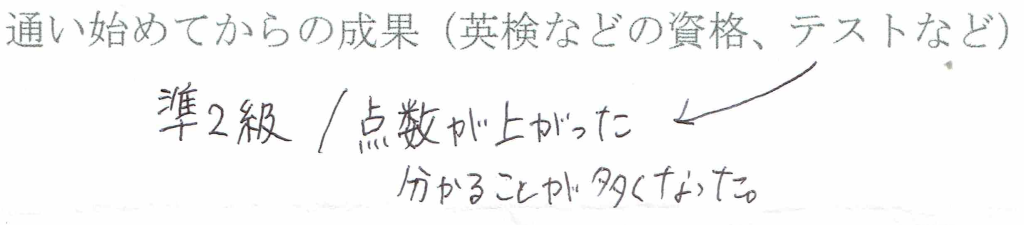 通い始めてからの成果（英検などの資格、テストなど）
準2級 / 点数が上がった
分かることが多くなった。